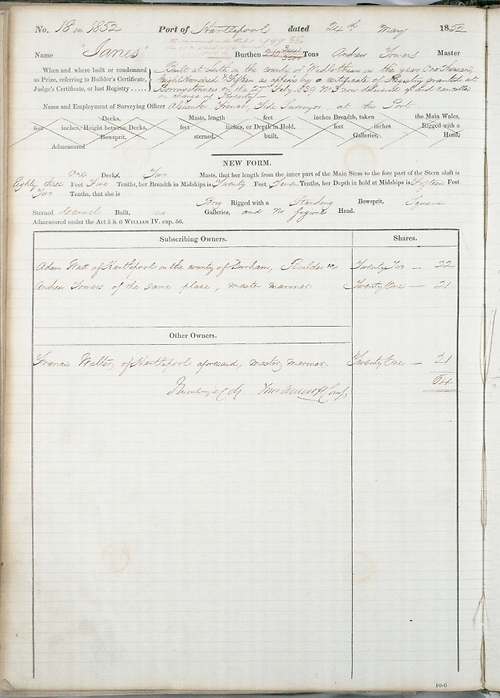 No. 18 in 1852 Port of Hartlepool dated 24th May 1852
Name "Janus" Burthen Tons Andrew Towers Master
When and where built or condemned
as Prize, referring to Builder's Certificate,
Judge's Certificate, or last Registry
Built at Leith in the county of Midlothian in the year One Thousand
Eight Hundred Fifteen as appears by a certificate of Registry granted at
Borrowstoness the 27 July 1839 No 3 now delivered up and cancelled
Name and Employment of Surveying Officer French, Tide Surveyor at the Port
Decks, Masts, length feet inches Breadth, taken the Main Wales,
feet inches, Height between Decks, feet inches, or Depth in Hold, feet inches, Rigged with a
Bowsprit, sterned, built, Galleries, Head,
Admeasured
NEW FORM.
One Deck, Two Masts, that her length from the inner part of the Main Stem to the fore part of the Stern aloft is
Eighty three Feet Five Tenths, her Breadth in Midships is Twenty Feet Tenths, her Depth in hold at Midships is Fifteen Feet
Two Tenths, that she is Brig Rigged with a Standing Bowsprit, Square
Sterned Carvel Built, no Galleries, and no figure Head.
Admeasured under the Act 5 & 6 WILLIAM IV. cap. 56.
Subscribing Owners. Shares.
Adam of Hartlepool in the county of Durham, Builder Twenty Two — 22
Andrew Towers of the same place, master mariner Twenty One — 21
Other Owners.
Francis Walter, of Hartlepool aforesaid, master mariner Twenty One — 21
64